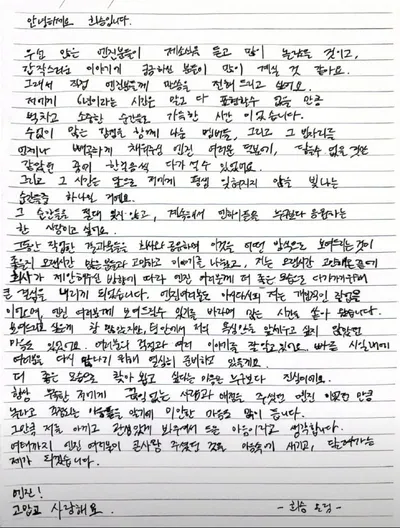 안녕하세요 희승입니다.
우선 많은 엔진분들이 제소식을 듣고 많이 놀랐을 것이고,
갑작스러운 이야기에 궁금하신 분들이 많이 계실 것 같아요.
그래서 직접 엔진분들께 말씀을 전해 드리고 싶어요.
저에게 6년이라는 시간은 말로 다 표현할수 없을 만큼
벅차고 소중한 순간들로 가득한 시간 이었습니다.
수없이 많은 감정을 함께 나눈 멤버들, 그리고 그 빈자리를
언제나 빼곡하게 채워주신 엔진 여러분 덕분에,
같았던 꿈에 한걸음씩 다가 설 수 있었어요.
그리고 그 시간은 앞으로 저에게 평생 잊혀지지 않을 빛나는
순간들중 하나일 거에요.
그 순간들을 절대 잊지 않고, 계속해서 엔하이픈을 누구보다 응원하는
한 사람이고 싶어요.
그동안 작업한 결과물들을 회사와 공유하며 이것을 어떤 방식으로 보여드리는것이
좋을지 오랜시간 많은 분들과 고민하고 이야기를 나눴고, 저는 오랜시간 고민해온 끝에
회사가 제안해주신 방향에 따라 엔진 여러분께 더 좋은 모습으로 다가가기위해
큰 결심을 내리게 되었습니다. 엔진여러분도 아시다시피 저는 개인적인 작업을
이어오며, 엔진 여러분께 보여드릴수 있기를 바라며 많은 시간을 쏟아 왔습니다.
보여드리고 싶은게 참 많았지만, 팀 안에서 저의 욕심만을 앞세우고 싶지 않았던
마음도 있었어요. 여러분의 걱정과 여러 이야기들 잘 알고 있어요. 빠른 시일내에
여러분을 다시 만나기 위해 열심히 준비하고 있을게요.
더 좋은 모습으로 찾아 뵙고 싶다는 마음은 누구보다 진심이에요.
항상 부족한 저에게 끊임 없는 사랑과 애정을 주셨던 엔진 이었던 만큼
놀라고 걱정되는 마음들을 안기게 미안한 마음도 많이 듭니다.
그만큼 저를 아끼고 관심있게 봐주셔서 드는 마음이라고 생각합니다.
여태까지 엔진 여러분이 큰사랑 주셨던 것을 마음속에 새기고, 달려가는
제가 되겠습니다.
엔진!
고맙고 사랑해요.
- 희승 올림 -